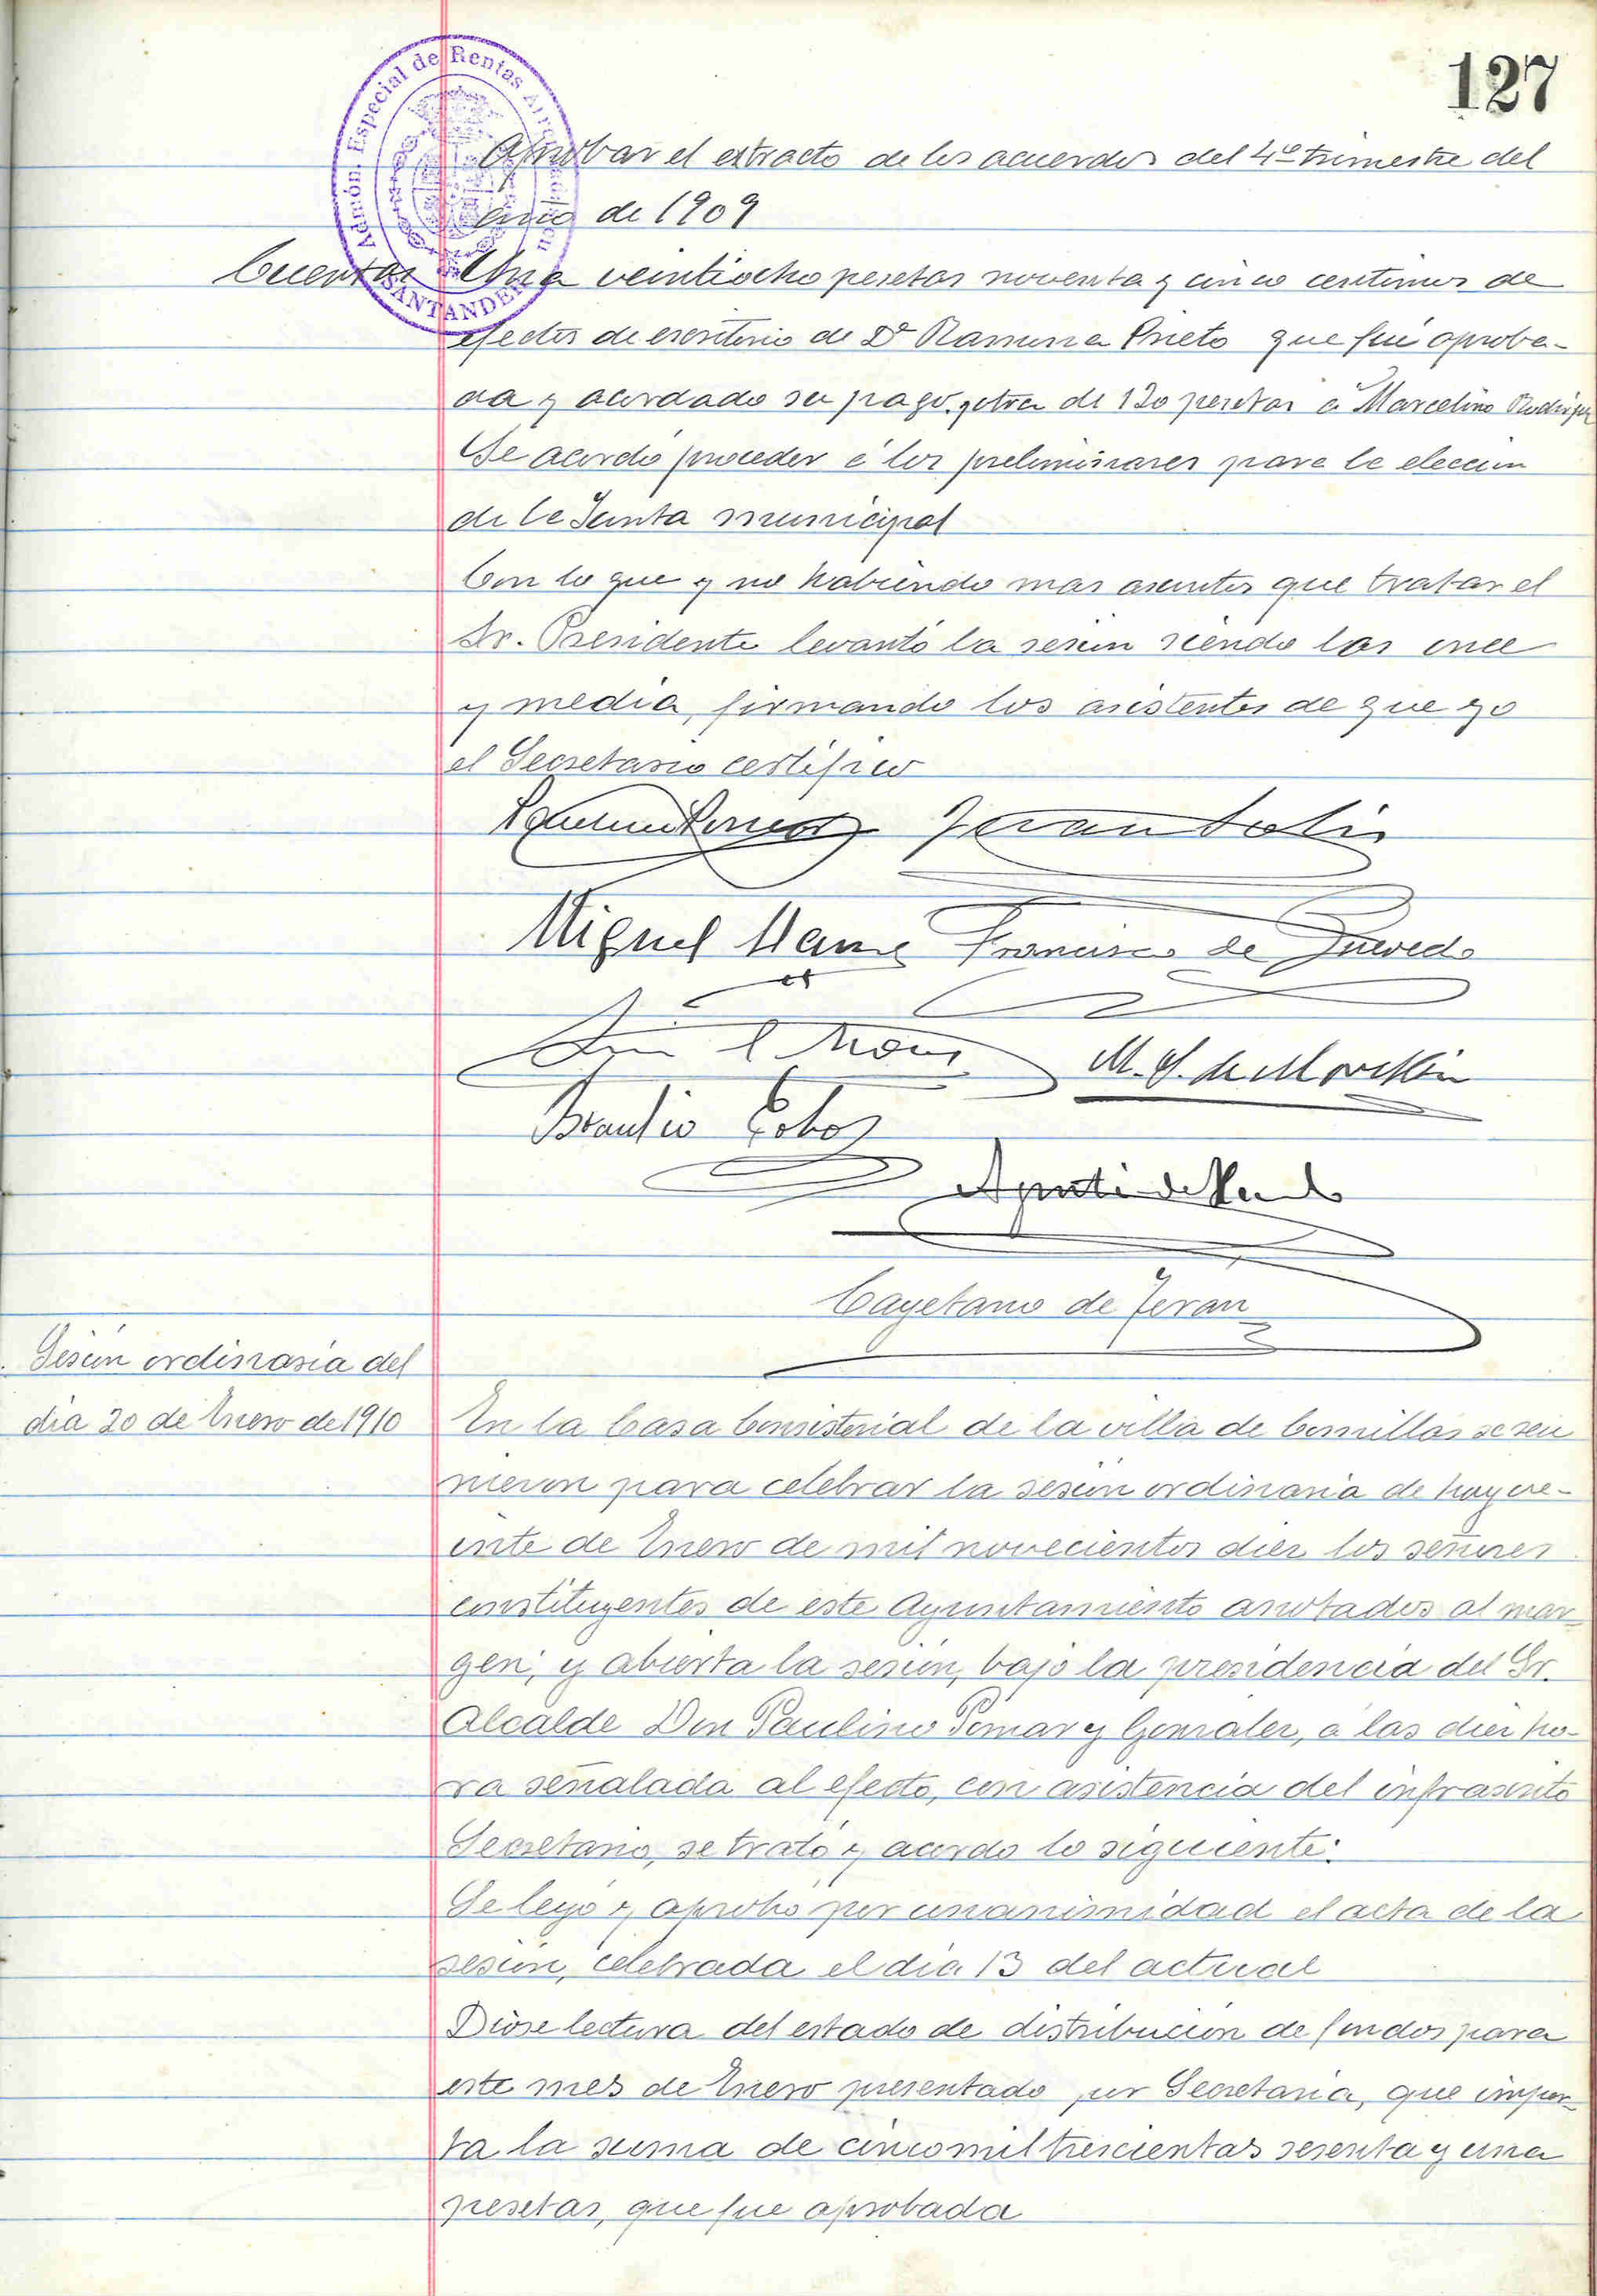 127
Admón. Especial de Rentas Arrendadas
SANTANDER
Aprobar el extracto de los acuerdos del 4º trimestre del
año de 1909
Cuentas
Una veintiocho pesetas noventa y cinco centimos de
efectos de escritorio de Dª Ramona Prieto que fué aproba-
da y acordado su pago, y otra de 120 pesetas á Marcelino Rodrigz
Se acordó proceder á los preliminares para la eleccion
de la Junta municipal
Con lo que y no habiendo mas asuntos que tratar el
Sr. Presidente levantó la sesion siendo las once
y media, firmando los asistentes de que yo
el Secretario certifico
Juan Solis
Miguel
Francisco de Quevedo
Braulio Cobos
Cayetano de Teran
Sesion ordinaria del
dia 20 de Enero de 1910
En la Casa Consistorial de la villa de Comillas se reu
nieron para celebrar la sesion ordinaria de hoy ve-
inte de Enero de mil novecientos diez los señores
constituyentes de este Ayuntamiento anotados al mar
gen; y abierta la sesion, bajo la presidencia del Sr.
Alcalde Don Paulino Pomar y Gonzalez, á las diez ho-
ra señalada al efecto, con asistencia del infrascrito
Secretario, se trató y acordo lo siguiente:
Se leyo y aprobo por unanimidad el acta de la
sesion, celebrada el dia 13 del actual
Diose lectura del estado de distribucion de fondos para
este mes de Enero presentado por Secretaria, que impor-
ta la suma de cinco mil trescientas sesenta y una
pesetas, que fue aprobada